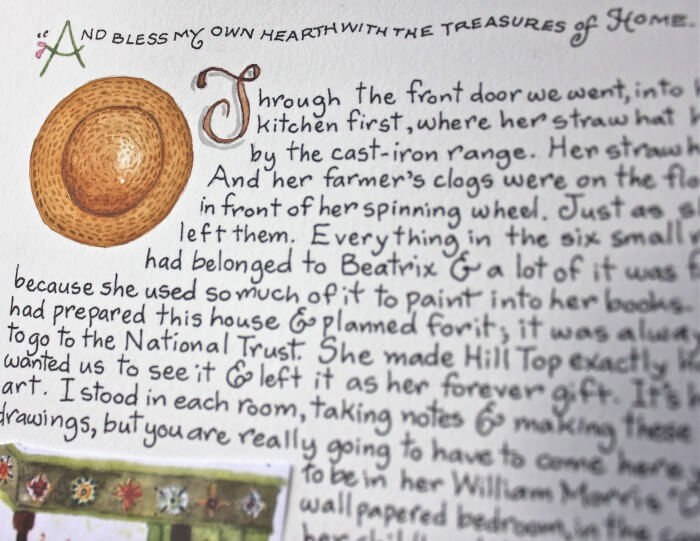 "And bless my own hearth with the treasures of Home
Through the front door we went, into
kitchen first, where her straw hat
by the cast-iron range. Her straw
And her farmer's clogs were on the
in front of her spinning wheel. Just as
left them. Everything in the six small
had belonged to Beatrix & a lot of it was
because she used so much of it to paint into her books.
had prepared this house & planned for it; it was
to go to the National Trust. She made Hill Top exactly
wanted us to see it & left it as her forever gift. It's
art. I stood in each room, taking notes & making these
drawings, but you are really going to have to come here,
to be in her William Morris
wallpapered bedroom, in the
her